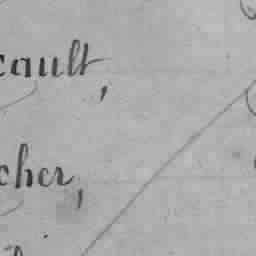 cault,
cher,